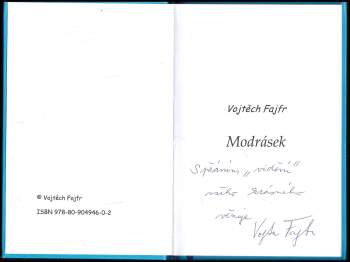 © Vojtěch Fajfr
ISBN 978-80-904946-0-2
Vojtěch Fajfr
Modrásek
S přáním „vidění"
věnuje
Vojtěch Fajfr